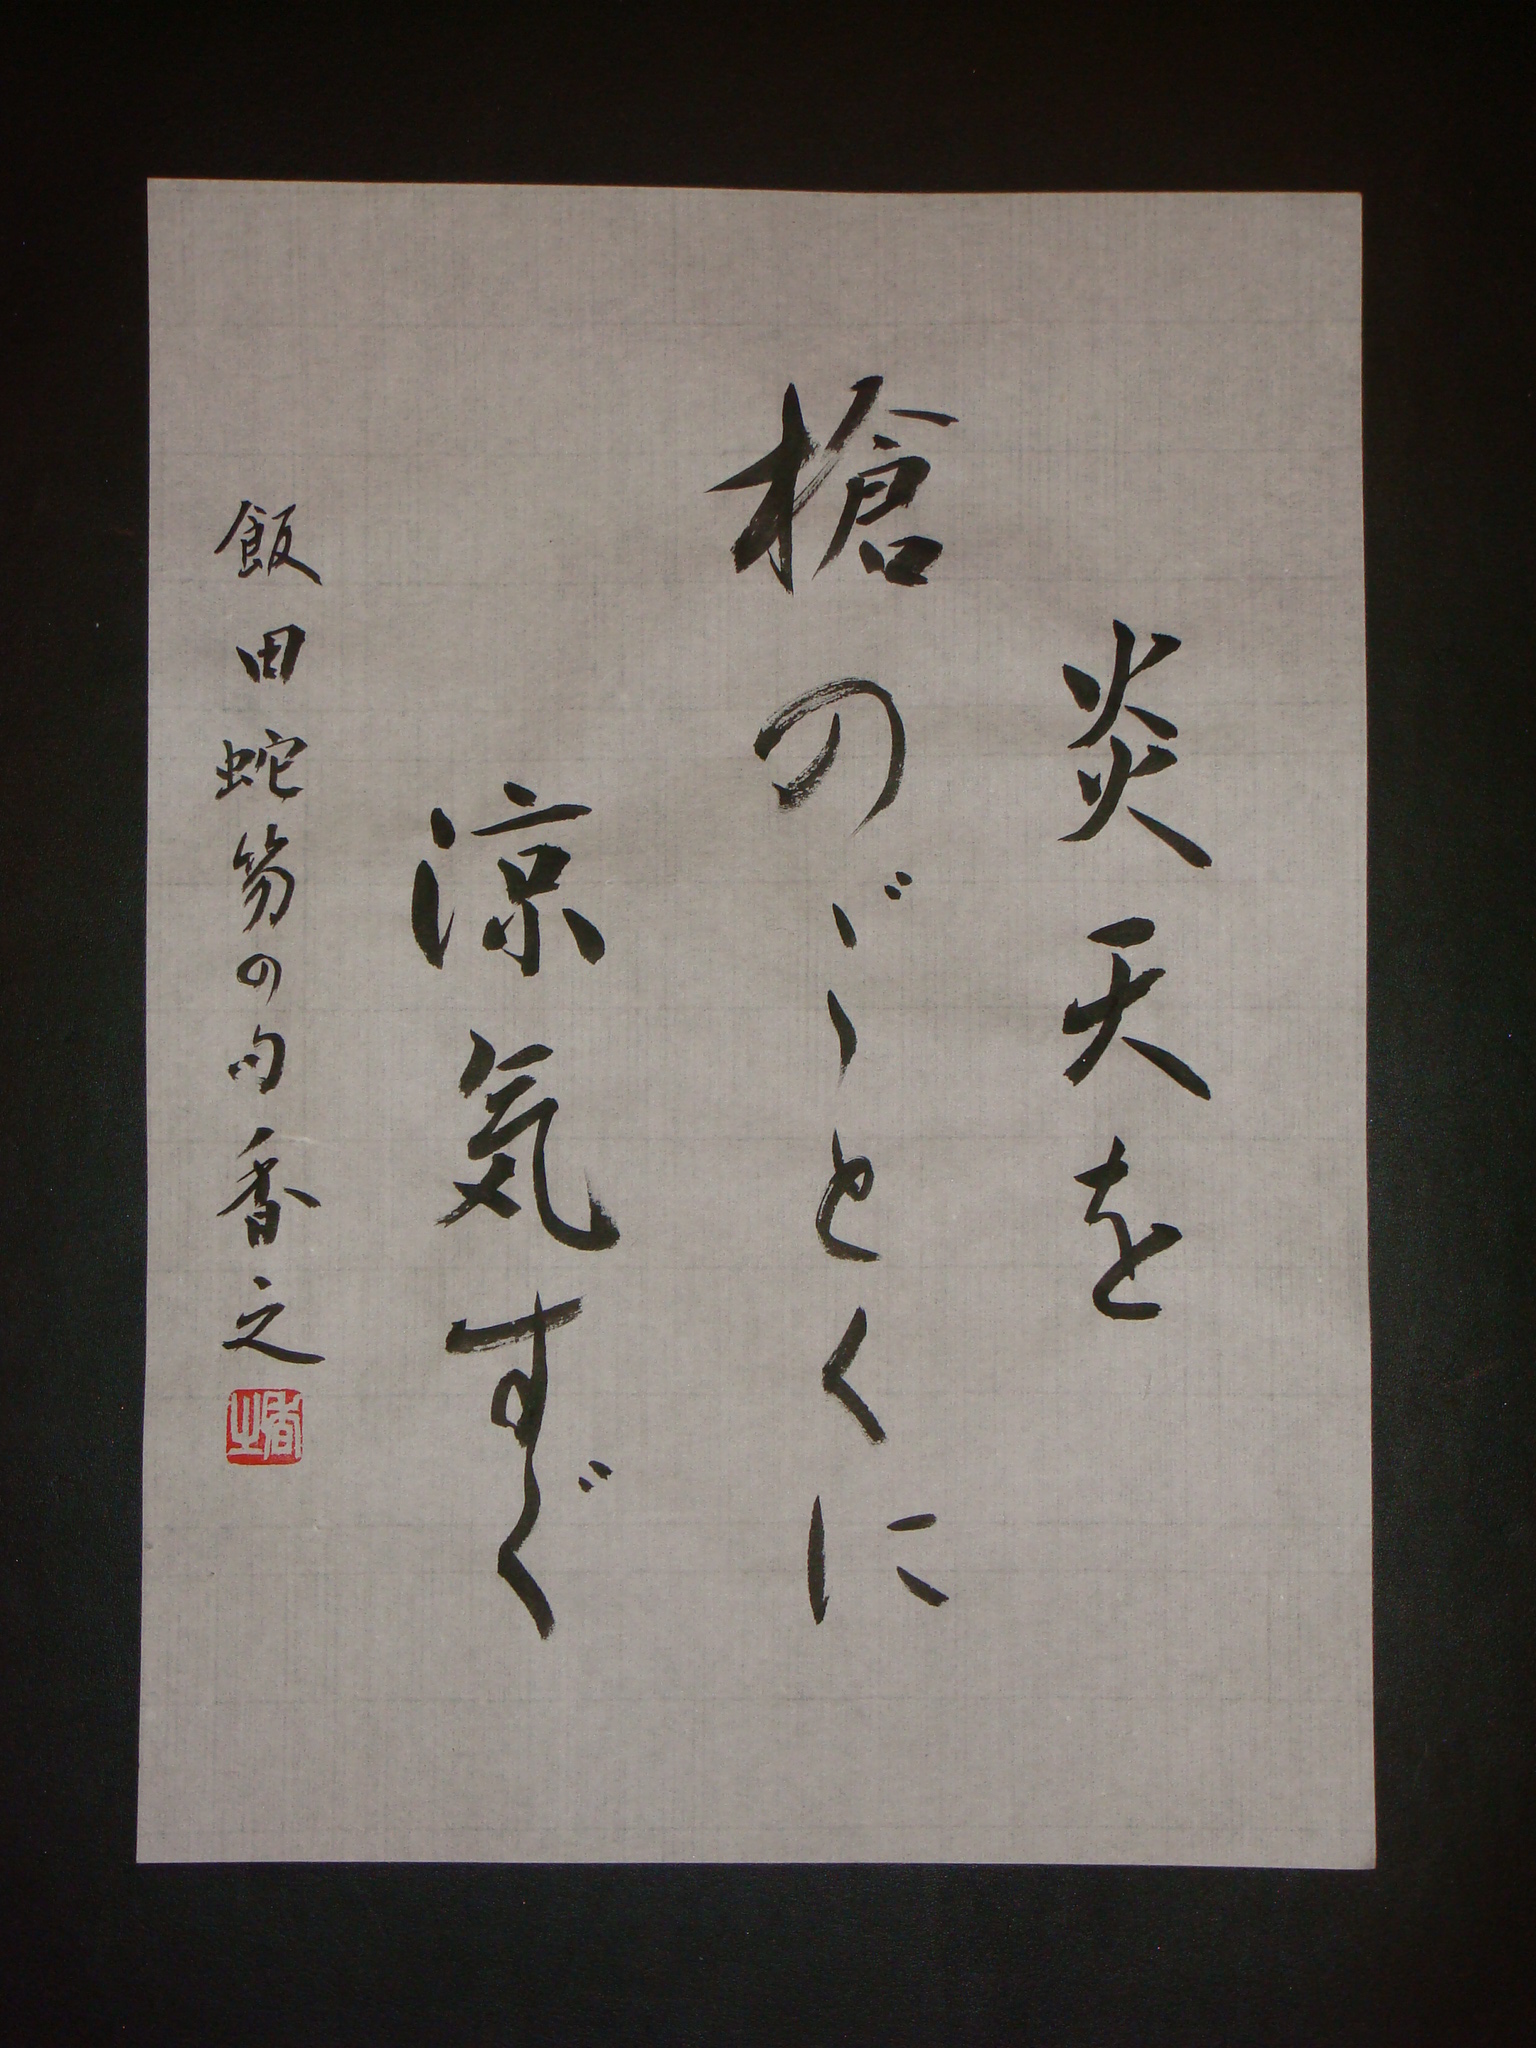 炎天を
槍のごとくに
涼気すぐ
飯田蛇笏の句 香之
香之